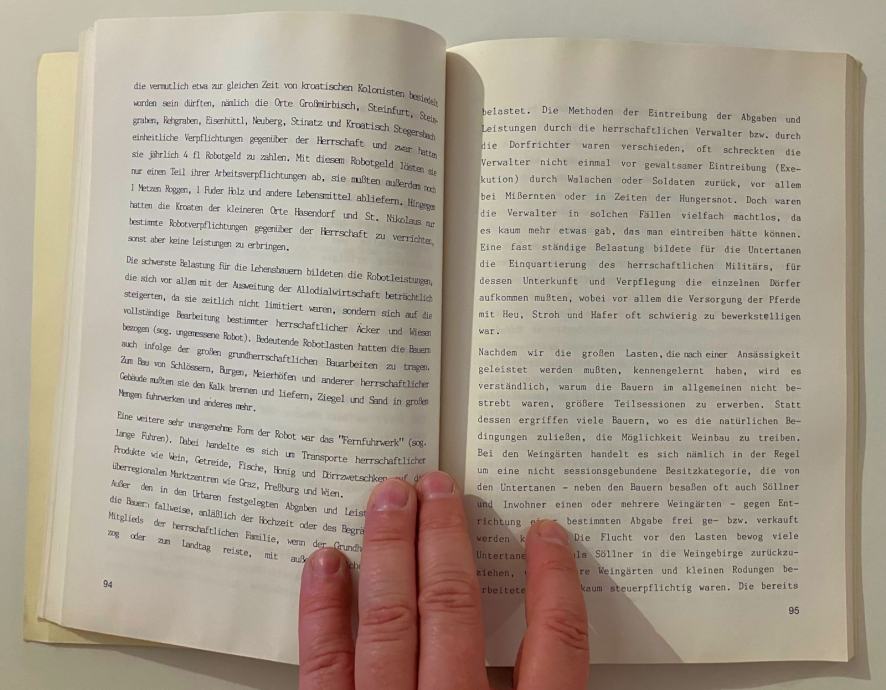 die vermutlich etwa zur gleichen Zeit von kroatischen Kolonisten besiedelt
worden sein dürften, nämlich die Orte Großmürbisch, Steinfurt, Stein-
graben, Rehgraben, Eisenhüttl, Neuberg, Stinatz und Kroatisch Stegersbach
einheitliche Verpflichtungen gegenüber der Herrschaft und zwar hatten
sie jährlich 4 fl Robotgeld zu zahlen. Mit diesem Robotgeld lösten sie
nur einen Teil ihrer Arbeitsverpflichtungen ab, sie mußten außerdem noch
1 Metzen Roggen, 1 Fuder Holz und andere Lebensmittel abliefern. Hingegen
hatten die Kroaten der kleineren Orte Hasendorf und St. Nikolaus nur
bestimmte Robotverpflichtungen gegenüber der Herrschaft zu verrichten,
sonst aber keine Leistungen zu erbringen.
Die schwerste Belastung für die Lehensbauern bildeten die Robotleistungen,
die sich vor allem mit der Ausweitung der Allodialwirtschaft beträchtlich
steigerten, da sie zeitlich nicht limitiert waren, sondern sich auf die
vollständige Bearbeitung bestimmter herrschaftlicher Äcker und Wiesen
bezogen (sog. ungemessene Robot). Bedeutende Robotlasten hatten die Bauern
auch infolge der großen grundherrschaftlichen Bauarbeiten zu tragen.
Zum Bau von Schlössern, Burgen, Meierhöfen und anderer herrschaftlicher
Gebäude mußten sie den Kalk brennen und liefern, Ziegel und Sand in großen
Mengen fuhrwerken und anderes mehr.
Eine weitere sehr unangenehme Form der Robot war das "Fernfuhrwerk" (sog.
lange Fuhren). Dabei handelte es sich um Transporte herrschaftlicher
Produkte wie Wein, Getreide, Fische, Honig und Dörrzwetschken auf
überregionalen Marktzentren wie Graz, Preßburg und Wien.
Außer den in den Urbaren festgelegten Abgaben und
die Bauern fallweise, anläßlich der Hochzeit oder des
Mitglieds der herrschaftlichen Familie, wenn der
zog oder zum Landtag reiste, mit
94
belastet. Die Methoden der Eintreibung der Abgaben und
Leistungen durch die herrschaftlichen Verwalter bzw. durch
die Dorfrichter waren verschieden, oft schreckten die
Verwalter nicht einmal vor gewaltsamer Eintreibung (Exe-
kution) durch Walachen oder Soldaten zurück, vor allem
bei Mißernten oder in Zeiten der Hungersnot. Doch waren
die Verwalter in solchen Fällen vielfach machtlos, da
es kaum mehr etwas gab, das man eintreiben hätte können.
Eine fast ständige Belastung bildete für die Untertanen
die Einquartierung des herrschaftlichen Militärs, für
dessen Unterkunft und Verpflegung die einzelnen Dörfer
aufkommen mußten, wobei vor allem die Versorgung der Pferde
mit Heu, Stroh und Hafer oft schwierig zu bewerkstelligen
war.
Nachdem wir die großen Lasten, die nach einer Ansässigkeit
geleistet werden mußten, kennengelernt haben, wird es
verständlich, warum die Bauern im allgemeinen nicht be-
strebt waren, größere Teilsessionen zu erwerben. Statt
dessen ergriffen viele Bauern, wo es die natürlichen Be-
dingungen zuließen, die Möglichkeit Weinbau zu treiben.
Bei den Weingärten handelt es sich nämlich in der Regel
um eine nicht sessionsgebundene Besitzkategorie, die von
den Untertanen - neben den Bauern besaßen oft auch Söllner
und Inwohner einen oder mehrere Weingärten - gegen Ent-
richtung bestimmten Abgabe frei ge- bzw. verkauft
werden Die Flucht vor den Lasten bewog viele
als Söllner in die Weingebirge zurückzu-
ziehen, Weingärten und kleinen Rodungen be-
kaum steuerpflichtig waren. Die bereits
95